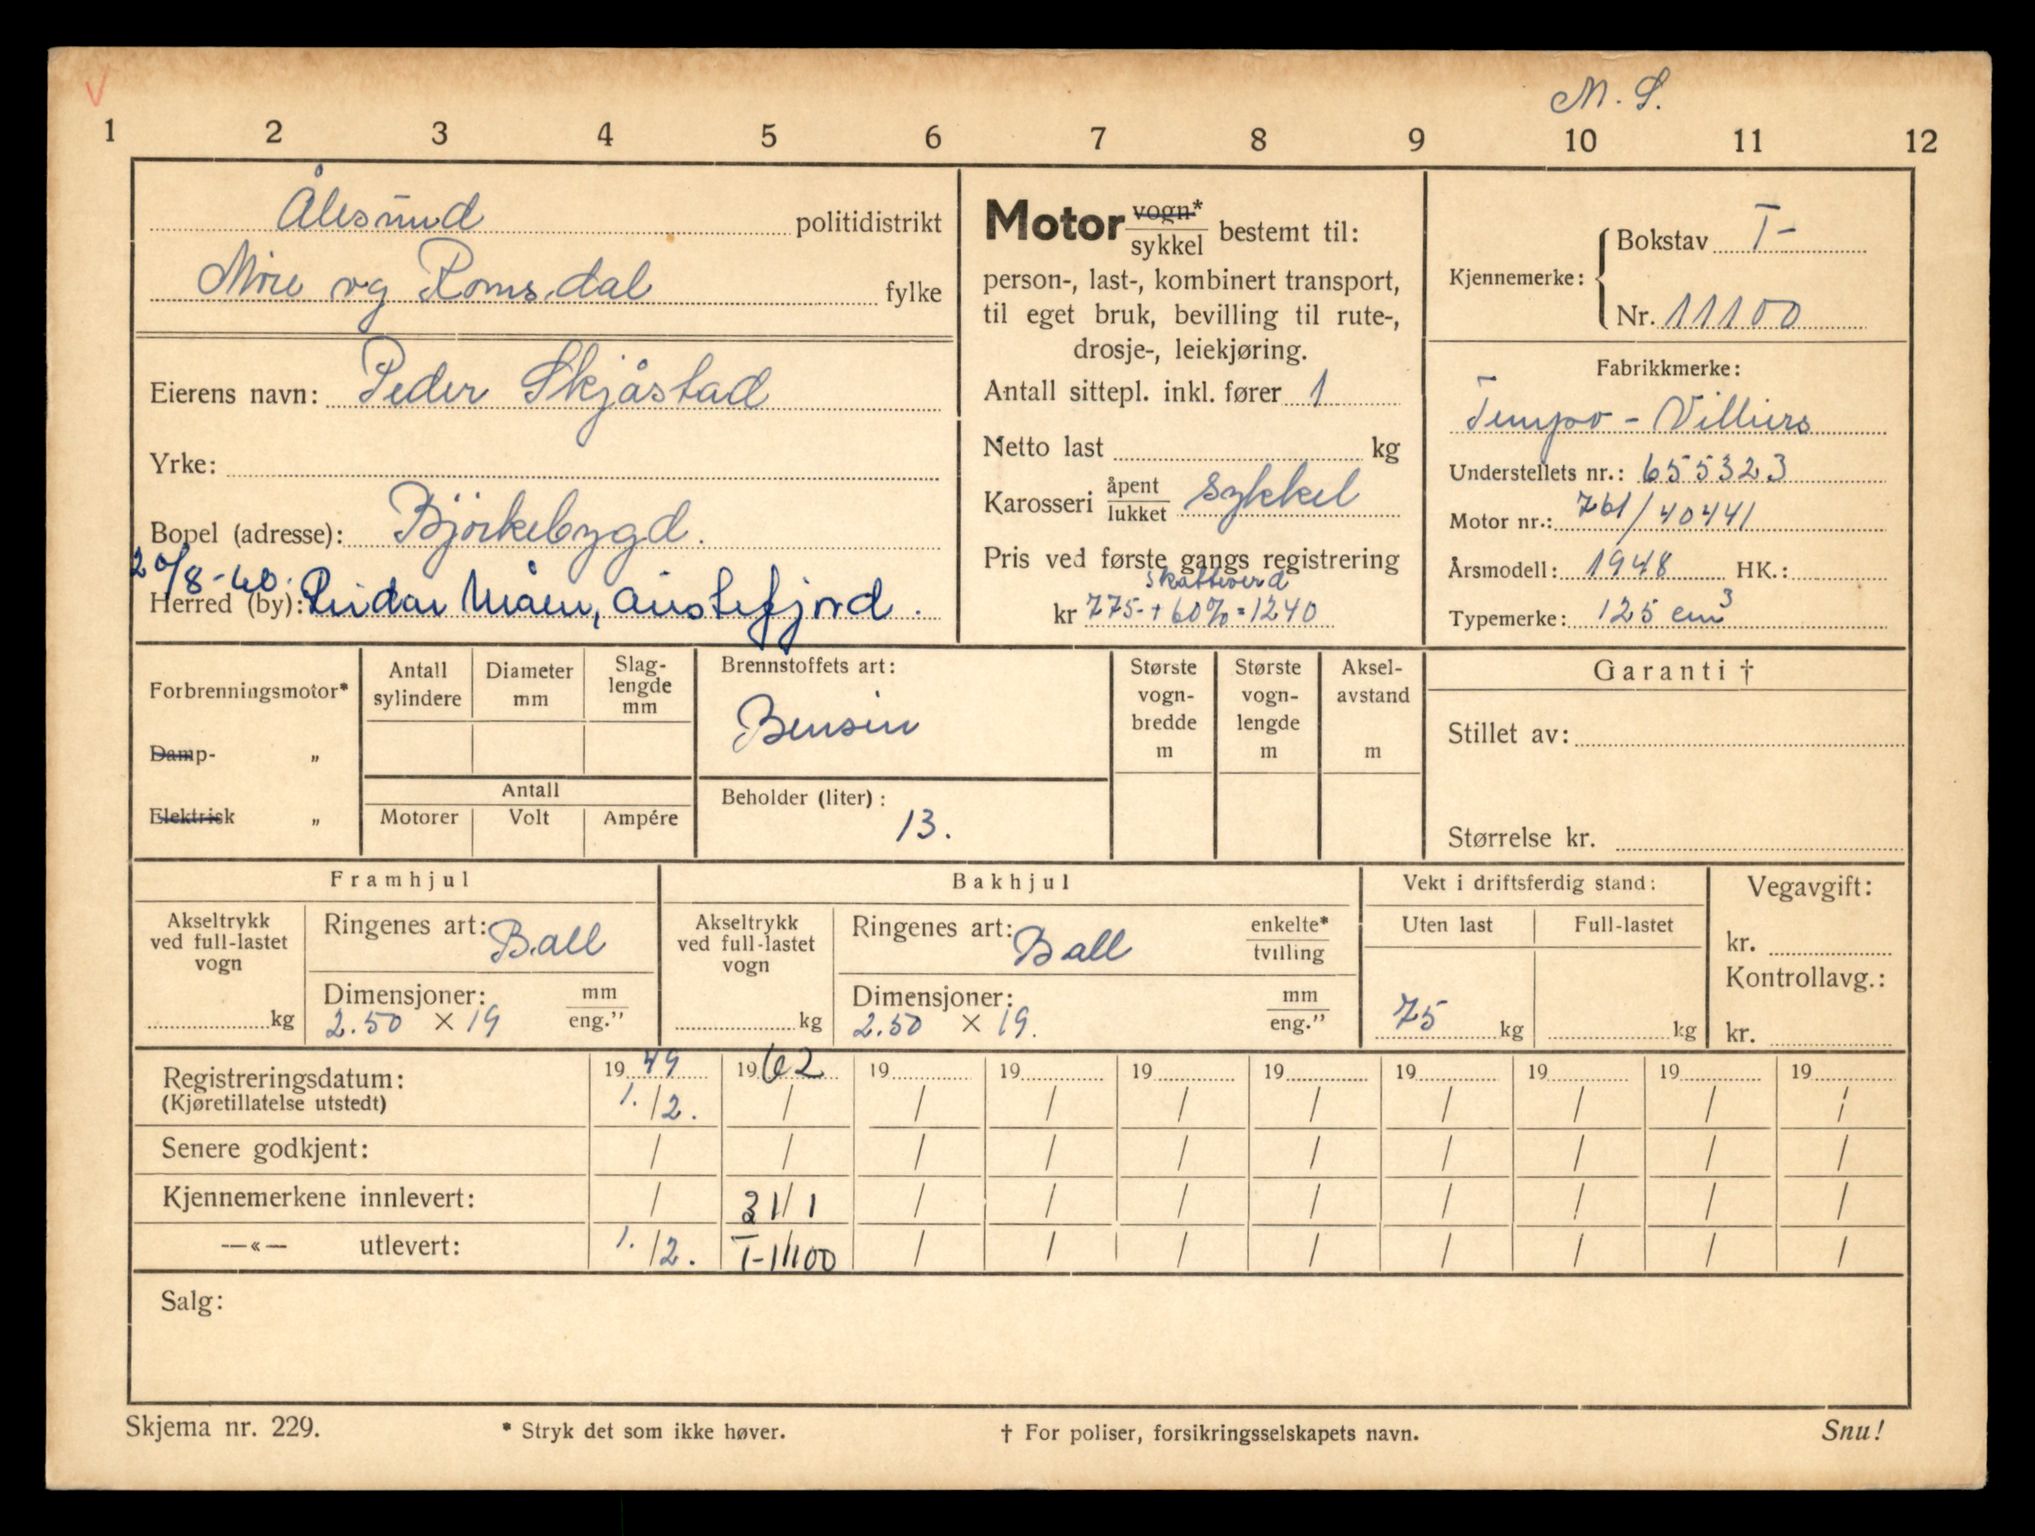 V
M. S.
1 2 3 4 5 6 7 8 9 10 11 12
Ålesund politidistrikt
Møre og Romsdal fylke
Eierens navn: Peder Skjåstad
Yrke:
Bopel (adresse): Björkebygd.
20/8-60.
Herred (by): Måen, Austefjord.
Motor vogn*/sykkel bestemt til:
person-, last-, kombinert transport,
til eget bruk, bevilling til rute-,
drosje-, leiekjøring.
Antall sittepl. inkl. fører 1
Netto last kg
Karosseri åpent/lukket sykkel
Pris ved første gangs registrering
skatteverd
kr 775- + 60% = 1240
Kjennemerke: Bokstav T-
Nr. 11100
Fabrikkmerke:
Tempo - Villiers
Understellets nr.: 655323
Motor nr.: 761/40441
Årsmodell: 1948 HK.:
Typemerke: 125 cm3
Forbrenningsmotor*
Damp- „
Elektrisk „
Antall sylindere
Diameter mm
Slag-lengde mm
Antall
Motorer Volt Ampére
Brennstoffets art:
Bensin
Beholder (liter):
13.
Største vogn-bredde m
Største vogn-lengde m
Aksel-avstand m
Garanti †
Stillet av:
Størrelse kr.
Framhjul
Akseltrykk
ved full-lastet
vogn
kg
Ringenes art: Ball
Dimensjoner: mm/eng.”
2.50 × 19
Bakhjul
Akseltrykk
ved full-lastet
vogn
kg
Ringenes art: Ball enkelte*/tvilling
Dimensjoner: mm/eng.”
2.50 × 19.
Vekt i driftsferdig stand:
Uten last Full-lastet
75 kg kg
Vegavgift:
kr.
Kontrollavg.:
kr.
Registreringsdatum: 19 49 19 62 19 19 19 19 19 19 19 19
(Kjøretillatelse utstedt) 1./2. / / / / / / / / /
Senere godkjent: / / / / / / / / / /
Kjennemerkene innlevert: / 31/1 / / / / / / / /
—«— utlevert: 1./2. T-11100 / / / / / / / /
Salg:
Skjema nr. 229. * Stryk det som ikke høver. † For poliser, forsikringsselskapets navn. Snu!